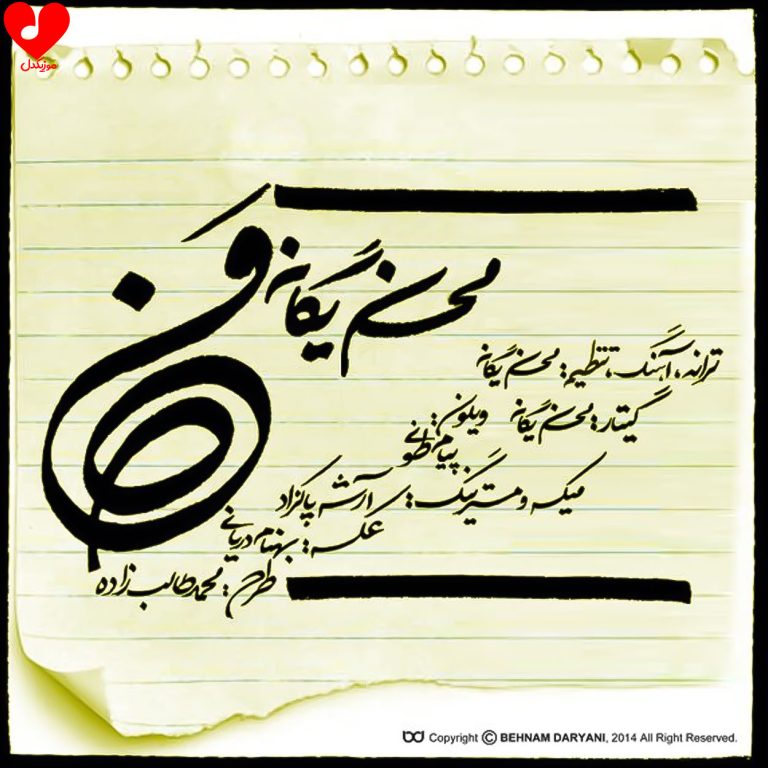 موزیکدل
محسن یگانه
ترانه، آهنگ، تنظیم: محسن یگانه
گیتار: محسن یگانه ویلون:
پیام طونی
میکس و مسترینگ: آرشه پاکزاد
عکس: بهنام دریانی
طراح: محمد طالب زاده
Copyright © BEHNAM DARYANI, 2014 All Right Reserved.